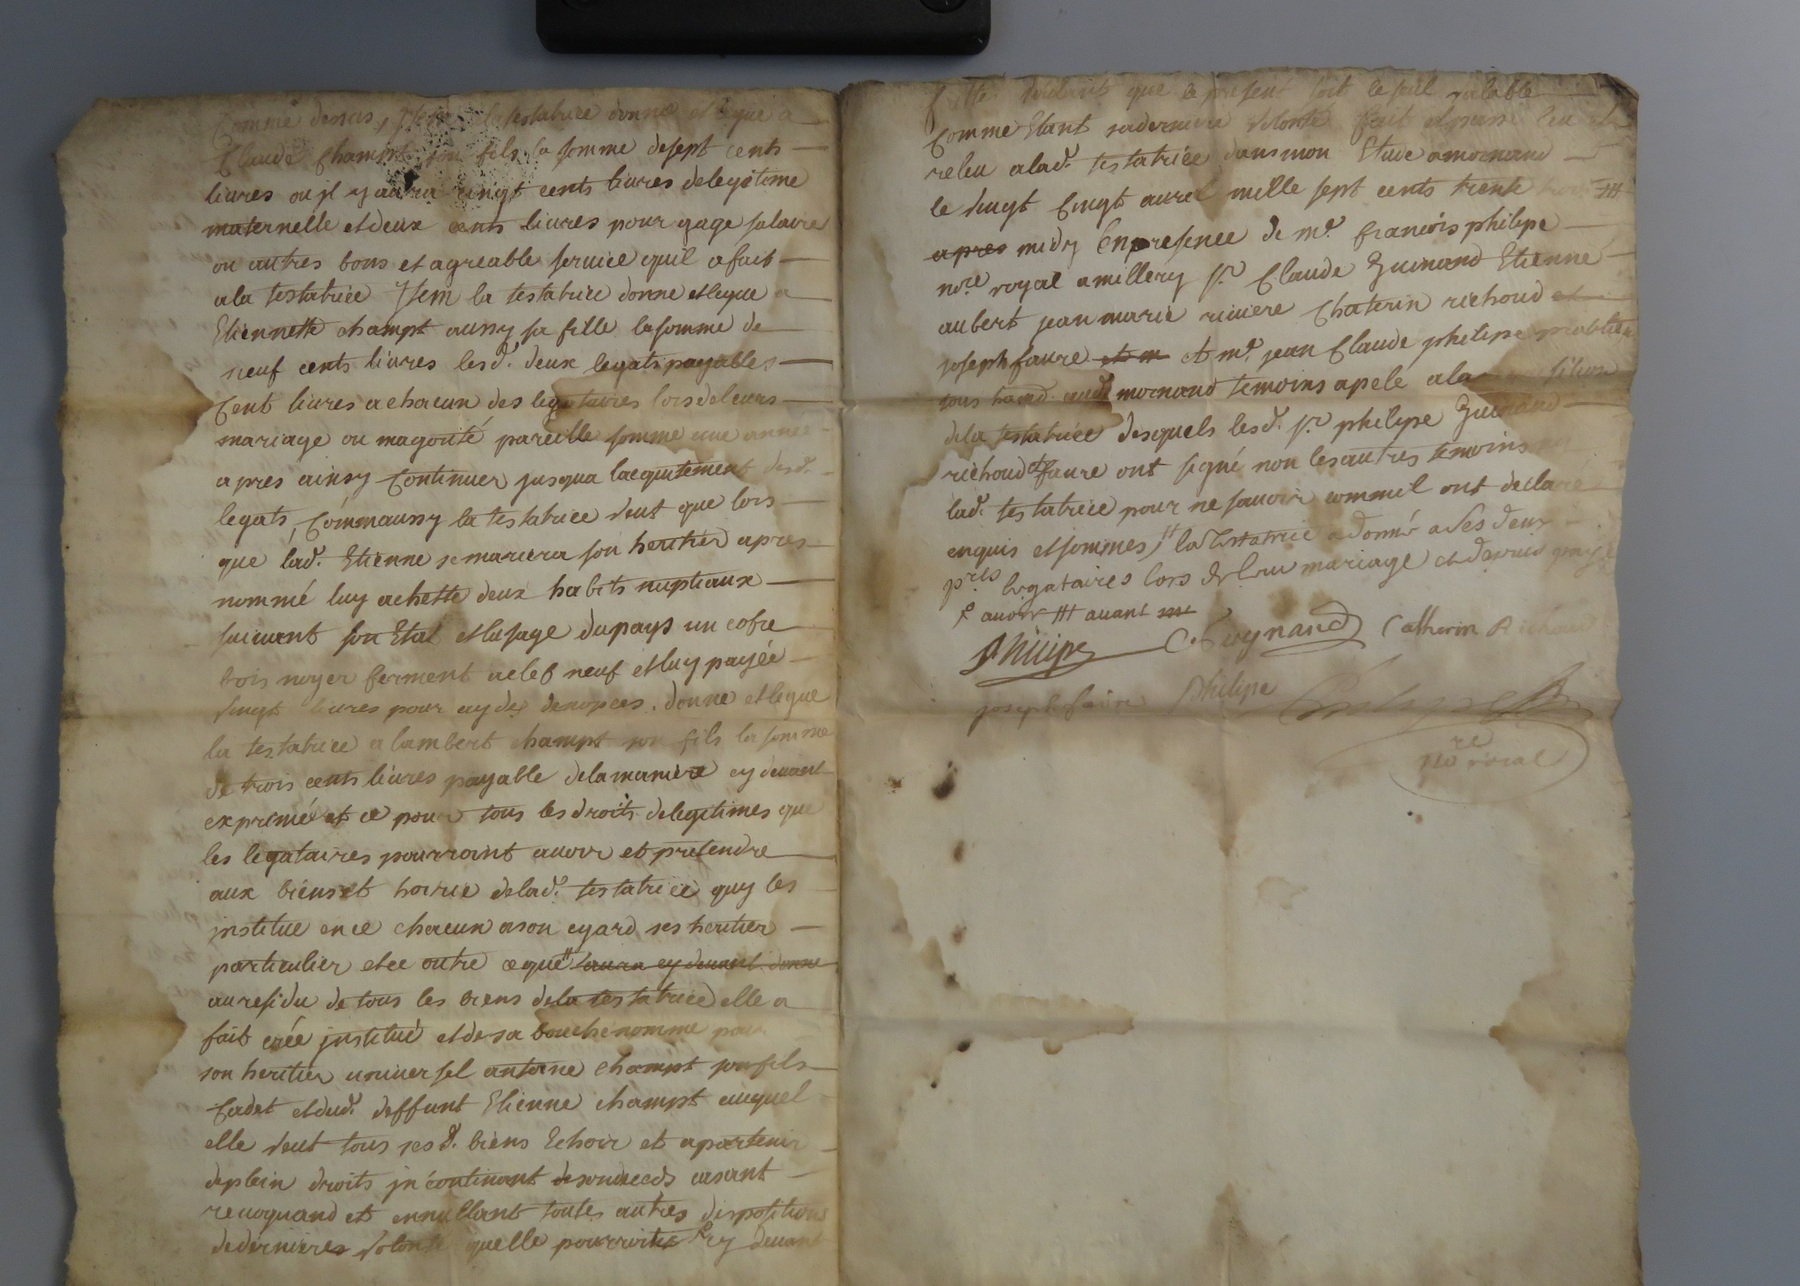 Comme dessus, Item la testatrice donne et legue a
Claude Champt son fils la somme de sept cents
livres ou jl y aura cinqt cents livres de legitome
maternelle et deux cents livres pour gage salaire
ou autres bons et agreable service quil a fait
a la testatrice Jtem la testatrice donne et legue a
Etiennette champt aussy sa fille la somme de
neuf cents livres lesd. deux legats payables
Cent livres a chacun des legataires lors de leurs
mariage ou magorité pareille somme une année
apres ainsy Continuer jusqua lacquitement desd.
legats, Comm aussy la testatrice veut que lors
que lad. Etienne se mariera son heritier apres
nommé luy achette deux habits nuptiaux
suivant son Etat et lusage du pays un cofre
bois noyer ferment a clef neuf et luy payée
vingt livres pour aydes denopces. donne et legue
la testatrice a lambert champt son fils la somme
de trois cents livres payable de la maniere cy devant
exprimée et ce pour tous les droits de legitimes que
les legataires pourroint avoir et pretendre
aux biens et hoirie de lad. testatrice quy les
jnstitue en ce chacun a son egard ses heritier
particulier et ce outre ce que laura cy devant donne
au residu de tous les biens de la testatrice elle a
fait créé jnstitué et de sa bouche nomme pour
son heritier universel antoine champt son fils
Cadet et dud. deffunt Etienne champt auquel
elle veut tous ses d. biens Echoir et apartenir
deplein droits jncontinant de son deceds avant
revoquand et annullant toutes autres dispositions
de dernieres volonté quelle pourroit cy devant
faittes voulant que le present soit le seul valable
Comme Etant sa derniere volonté fait et passé leu et
releu a lad. testatrice dans mon Etude a mornand
le vingt Cinqt avril mille sept cents trente
apres midy En presence de me. francois philipe
nore. royal a millery sr. Claude Guinand Etienne
aubert jean marie riviere Chaterin richoud et
joseph faure et m et me. jean Claude philipe
mornand témoins apelé a la
de la testatrice desquels lesd. sr. philipe Guinand
richoud et faure ont signé non les autres temoins
lad. testatrice pour ne scavoir comm il ont declaré
enquis et sommes, la testatrice a donné a ses deux
prs. legataires lors de leur mariage et
avoir avant
Philipe C. Guynand Catherin Richoud
joseph faure Philipe Philipe
nore roial